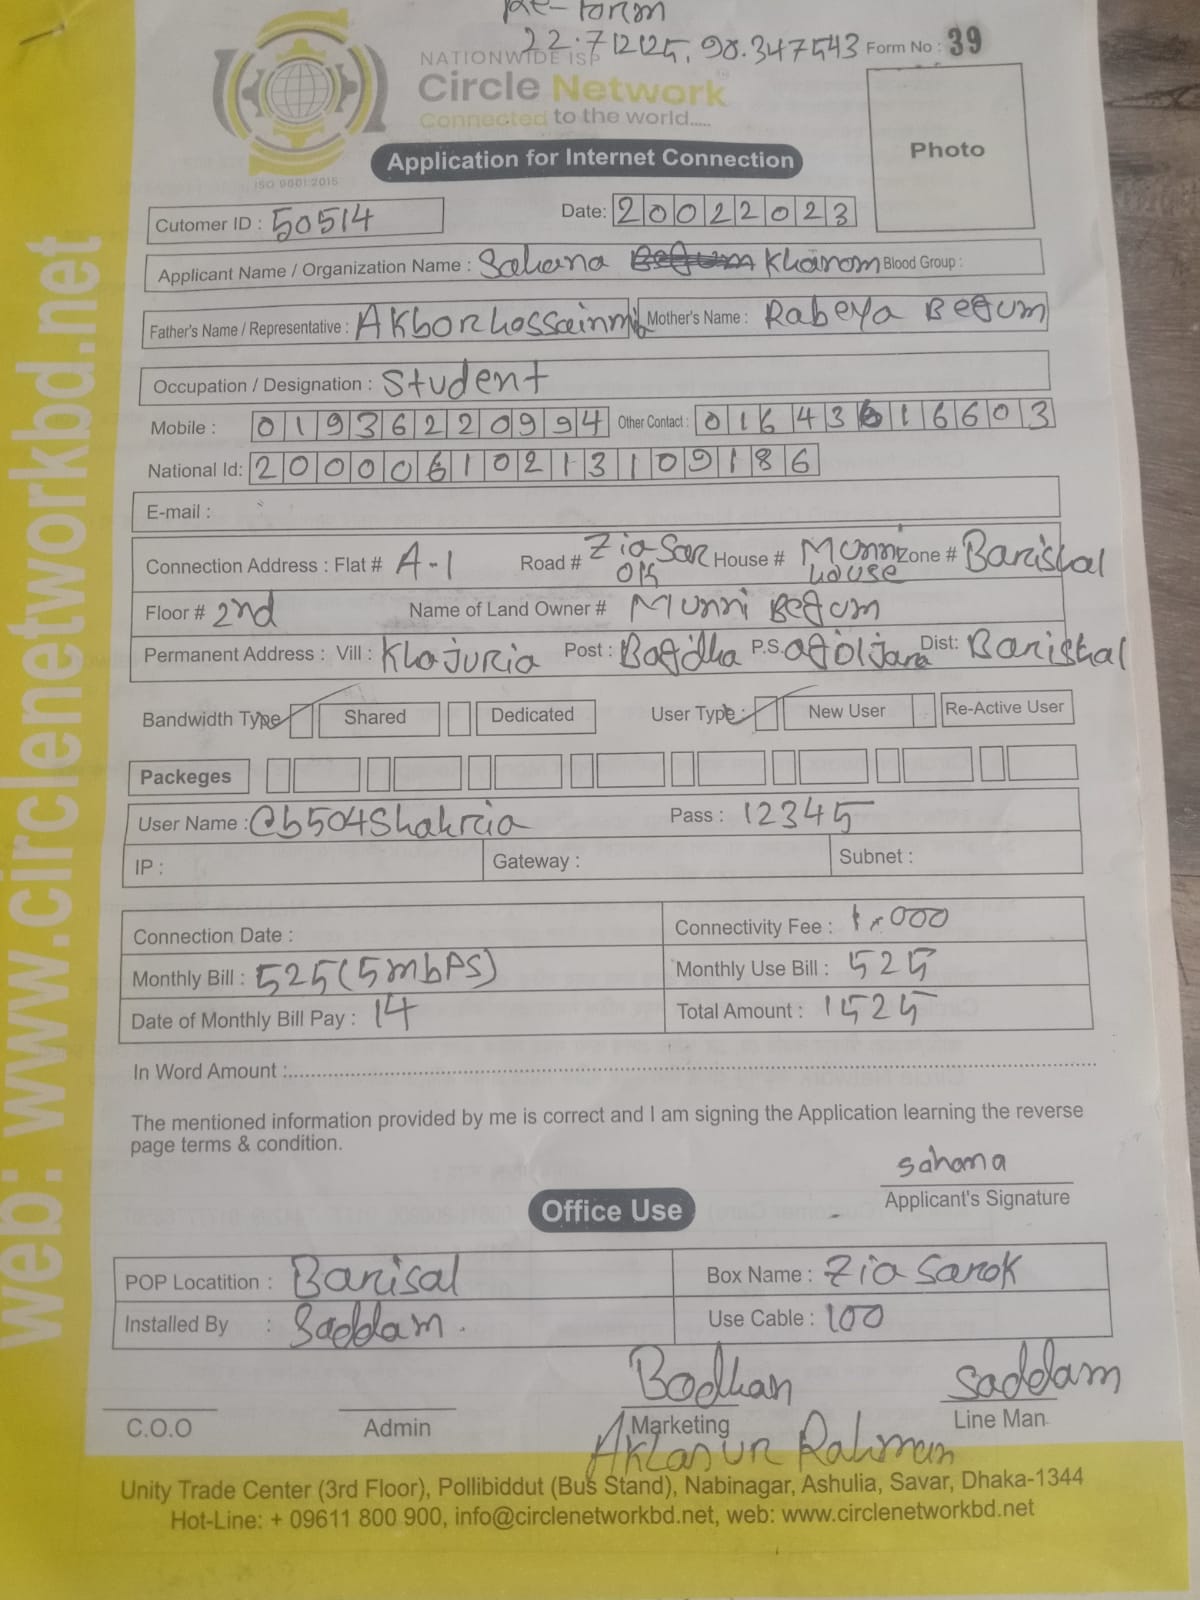 Re-form
22.712125, 90.347543
Form No : 39
NATIONWIDE ISP
Circle Network
Connected to the world.....
ISO 9001:2015
Application for Internet Connection
Photo
Cutomer ID : 50514
Date: 20022023
Applicant Name / Organization Name : Sahana Khanom Blood Group :
Father's Name / Representative : Akbor hossain mia Mother's Name : Rabeya Begum
Occupation / Designation : Student
Mobile : 01936220994 Other Contact : 01643616603
National Id: 20000610213109186
E-mail :
Connection Address : Flat # A-1 Road # Zia Sarok House # Munni house Zone # Barishal
Floor # 2nd Name of Land Owner # Munni Begum
Permanent Address : Vill : Khajuria Post : Bagdha P.S. agoiljara Dist: Barishal
Bandwidth Type Shared Dedicated User Type: New User Re-Active User
Packeges
User Name : @b504Shahria Pass : 12345
IP : Gateway : Subnet :
Connection Date : Connectivity Fee : 1000
Monthly Bill : 525 (5mbps) Monthly Use Bill : 525
Date of Monthly Bill Pay : 14 Total Amount : 1525
In Word Amount :
The mentioned information provided by me is correct and I am signing the Application learning the reverse
page terms & condition.
sahana
Applicant's Signature
Office Use
POP Locatition : Barisal Box Name : Zia Sarok
Installed By : Saddam. Use Cable : 100
Bodhan saddam
C.O.O Admin Marketing Line Man
Aklasur Rahman
Unity Trade Center (3rd Floor), Pollibiddut (Bus Stand), Nabinagar, Ashulia, Savar, Dhaka-1344
Hot-Line: + 09611 800 900, info@circlenetworkbd.net, web: www.circlenetworkbd.net
web: www.circlenetworkbd.net